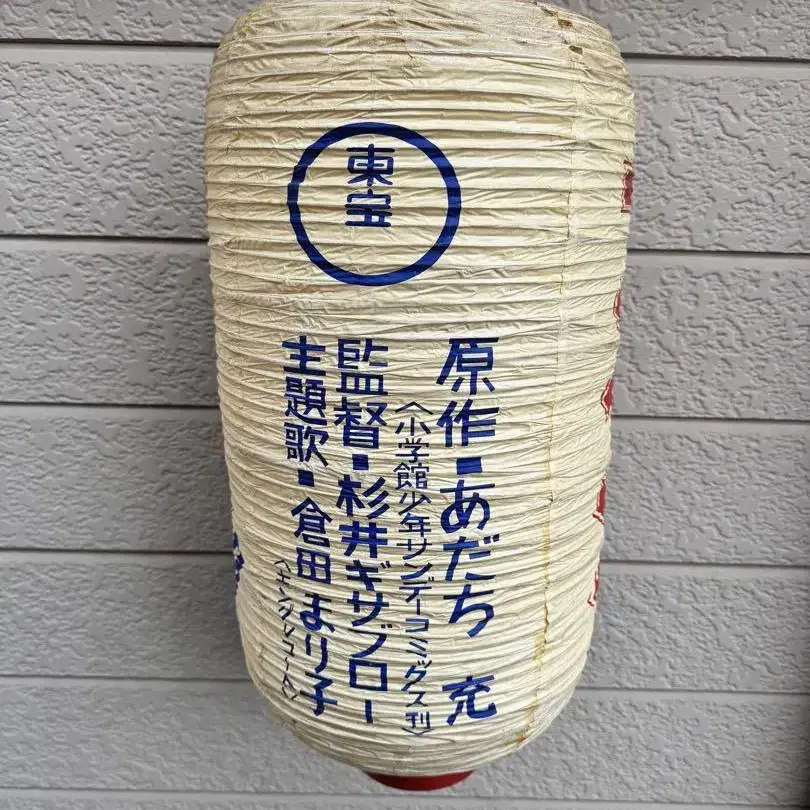 東宝
原作・あだち 充
〈小学館少年サンデーコミックス刊〉
監督・杉井ギサブロー
主題歌・倉田まり子
〈キングレコード〉